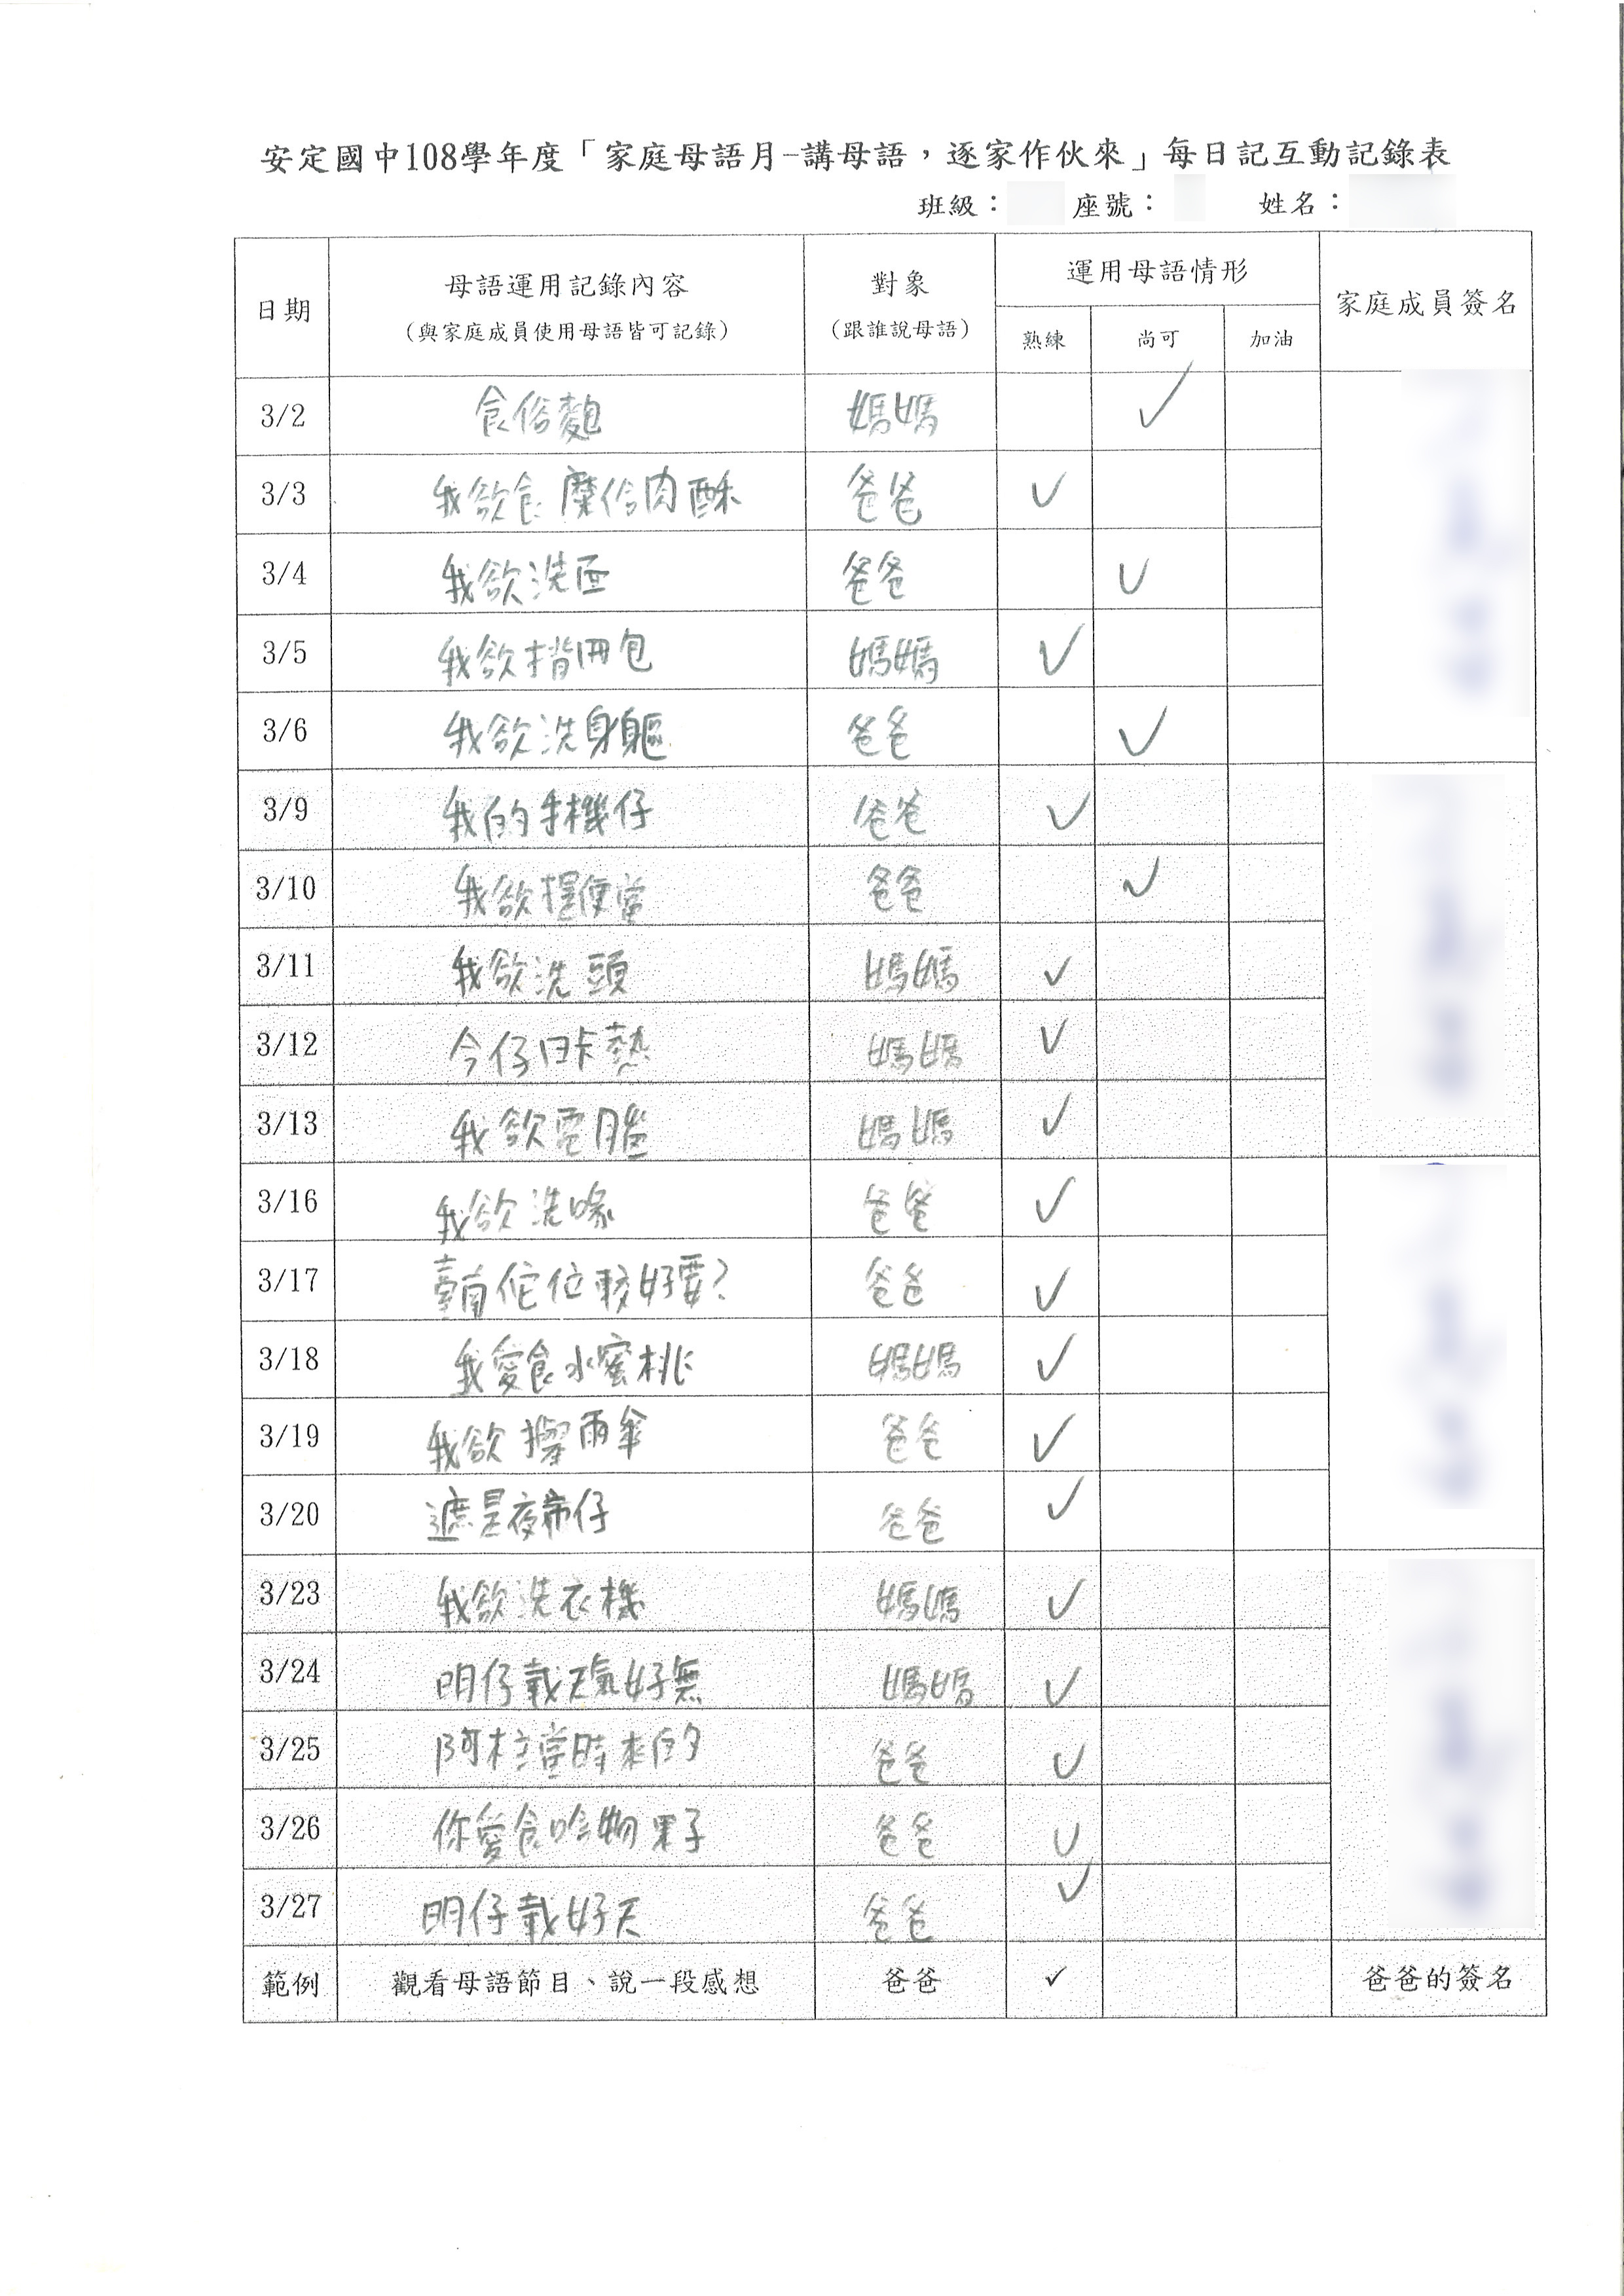 安定國中108學年度「家庭母語月-講母語，逐家作伙來」每日記互動記錄表
班級： 座號： 姓名：
日期 母語運用記錄內容 對象 運用母語情形 家庭成員簽名
（與家庭成員使用母語皆可記錄） （跟誰說母語） 熟練 尚可 加油
3/2 食俗麭 媽媽 ✓
3/3 我欲食糜佮肉酥 爸爸 ✓
3/4 我欲洗面 爸爸 ✓
3/5 我欲揹冊包 媽媽 ✓
3/6 我欲洗身軀 爸爸 ✓
3/9 我的手機仔 爸爸 ✓
3/10 我欲 便當 爸爸 ✓
3/11 我欲洗頭 媽媽 ✓
3/12 今仔日卡熱 媽媽 ✓
3/13 我欲電腦 媽媽 ✓
3/16 我欲洗喙 爸爸 ✓
3/17 臺南佗位較好耍? 爸爸 ✓
3/18 我愛食水蜜桃 媽媽 ✓
3/19 我欲攑雨傘 爸爸 ✓
3/20 遮是夜市仔 爸爸 ✓
3/23 我欲洗衣機 媽媽 ✓
3/24 明仔載天氣好無 媽媽 ✓
3/25 阿 當時來的 爸爸 ✓
3/26 你愛食啥物果子 爸爸 ✓
3/27 明仔載好天 爸爸 ✓
範例 觀看母語節目、說一段感想 爸爸 ✓ 爸爸的簽名